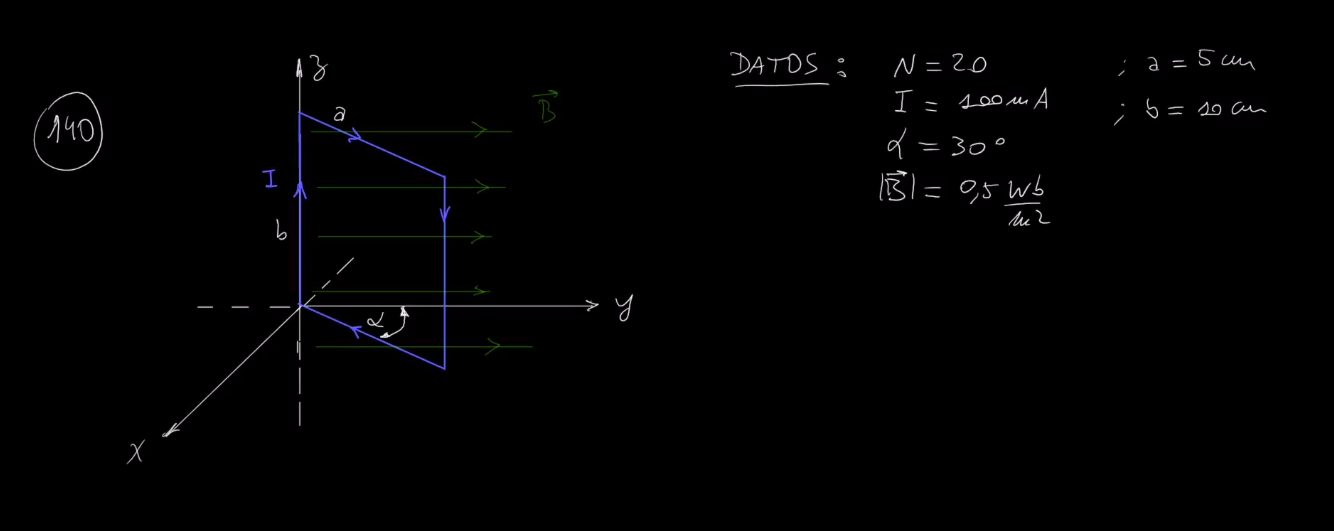 140
z
a
B
I
b
α
y
x
DATOS: N = 20 ; a = 5 cm
I = 100 mA ; b = 10 cm
α = 30°
|B| = 0,5 Wb/m2